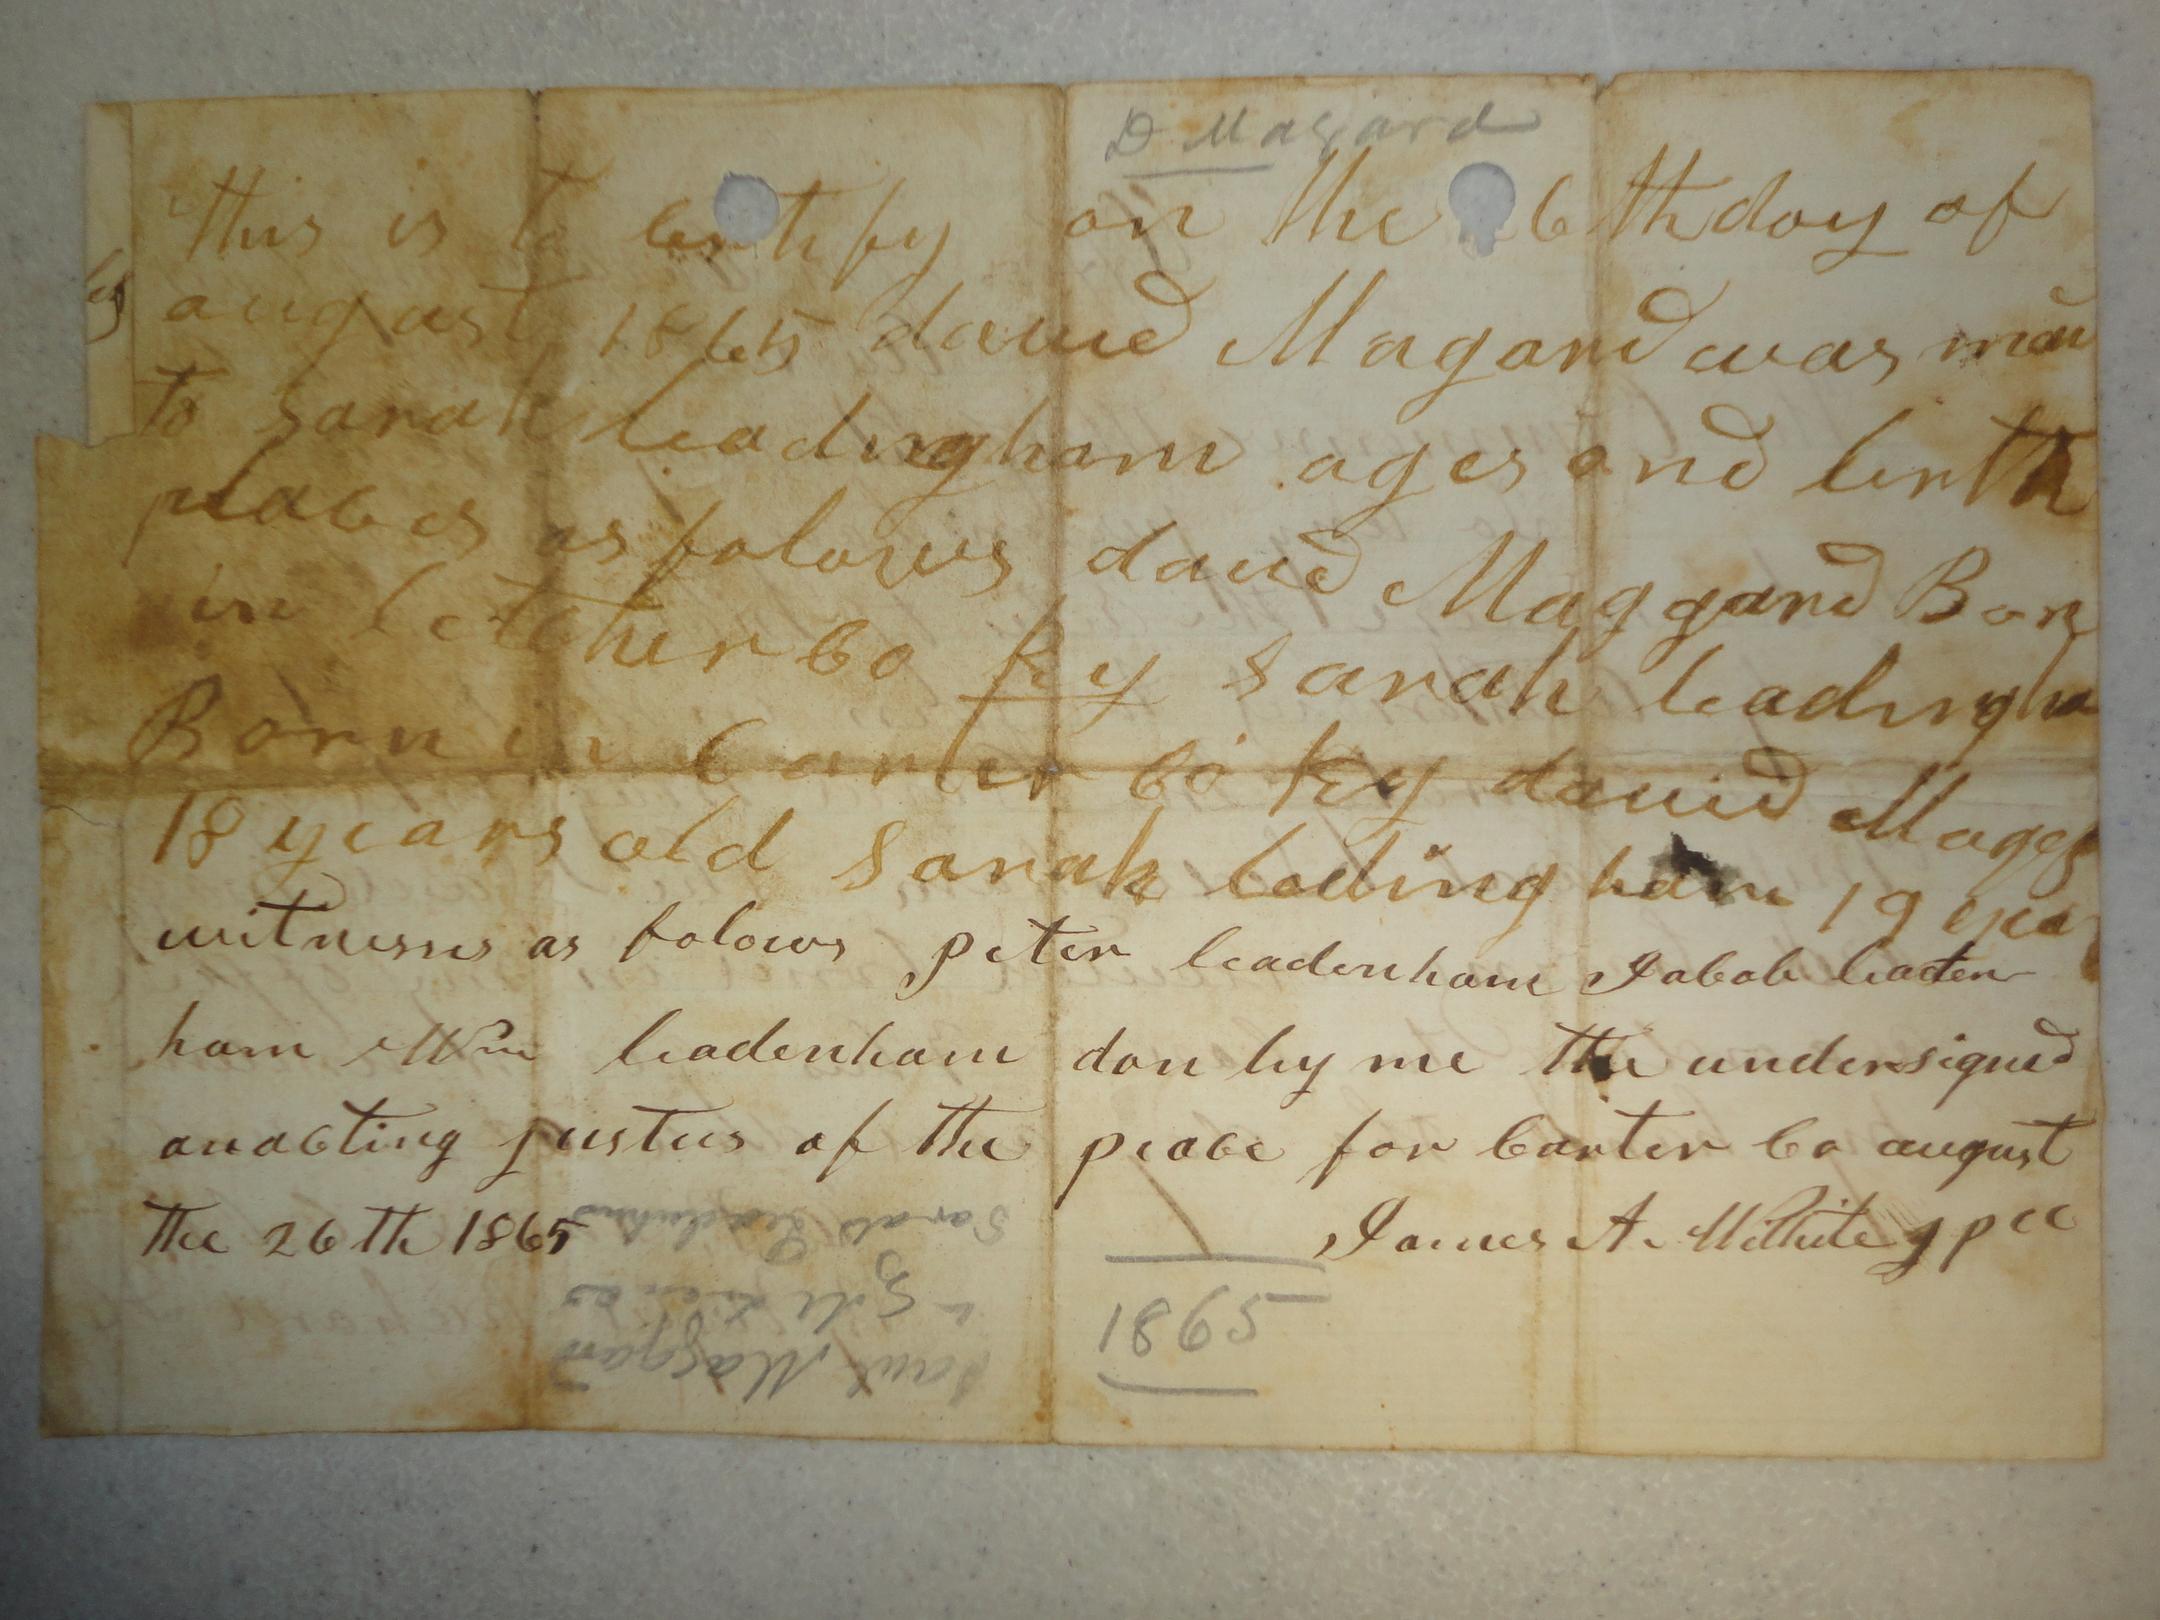 D Magard
this is to certify on the 26 th day of
august 1865 david Magard was mar
to sarah leadingham ages and birth
places as folows david Maggard Born
in letcher co Ky sarah leadingha
Born in carter co Ky david Magg
18 years old sarah leadingham 19 yea
witneses as folows peter leadenham Jacob leaden
ham Wm leadenham don by me the undersigned
anacting justus of the peace for carter co august
the 26 th 1865 James A. Wilhite J P CC
1865
Maggard
Sarah Leadenham